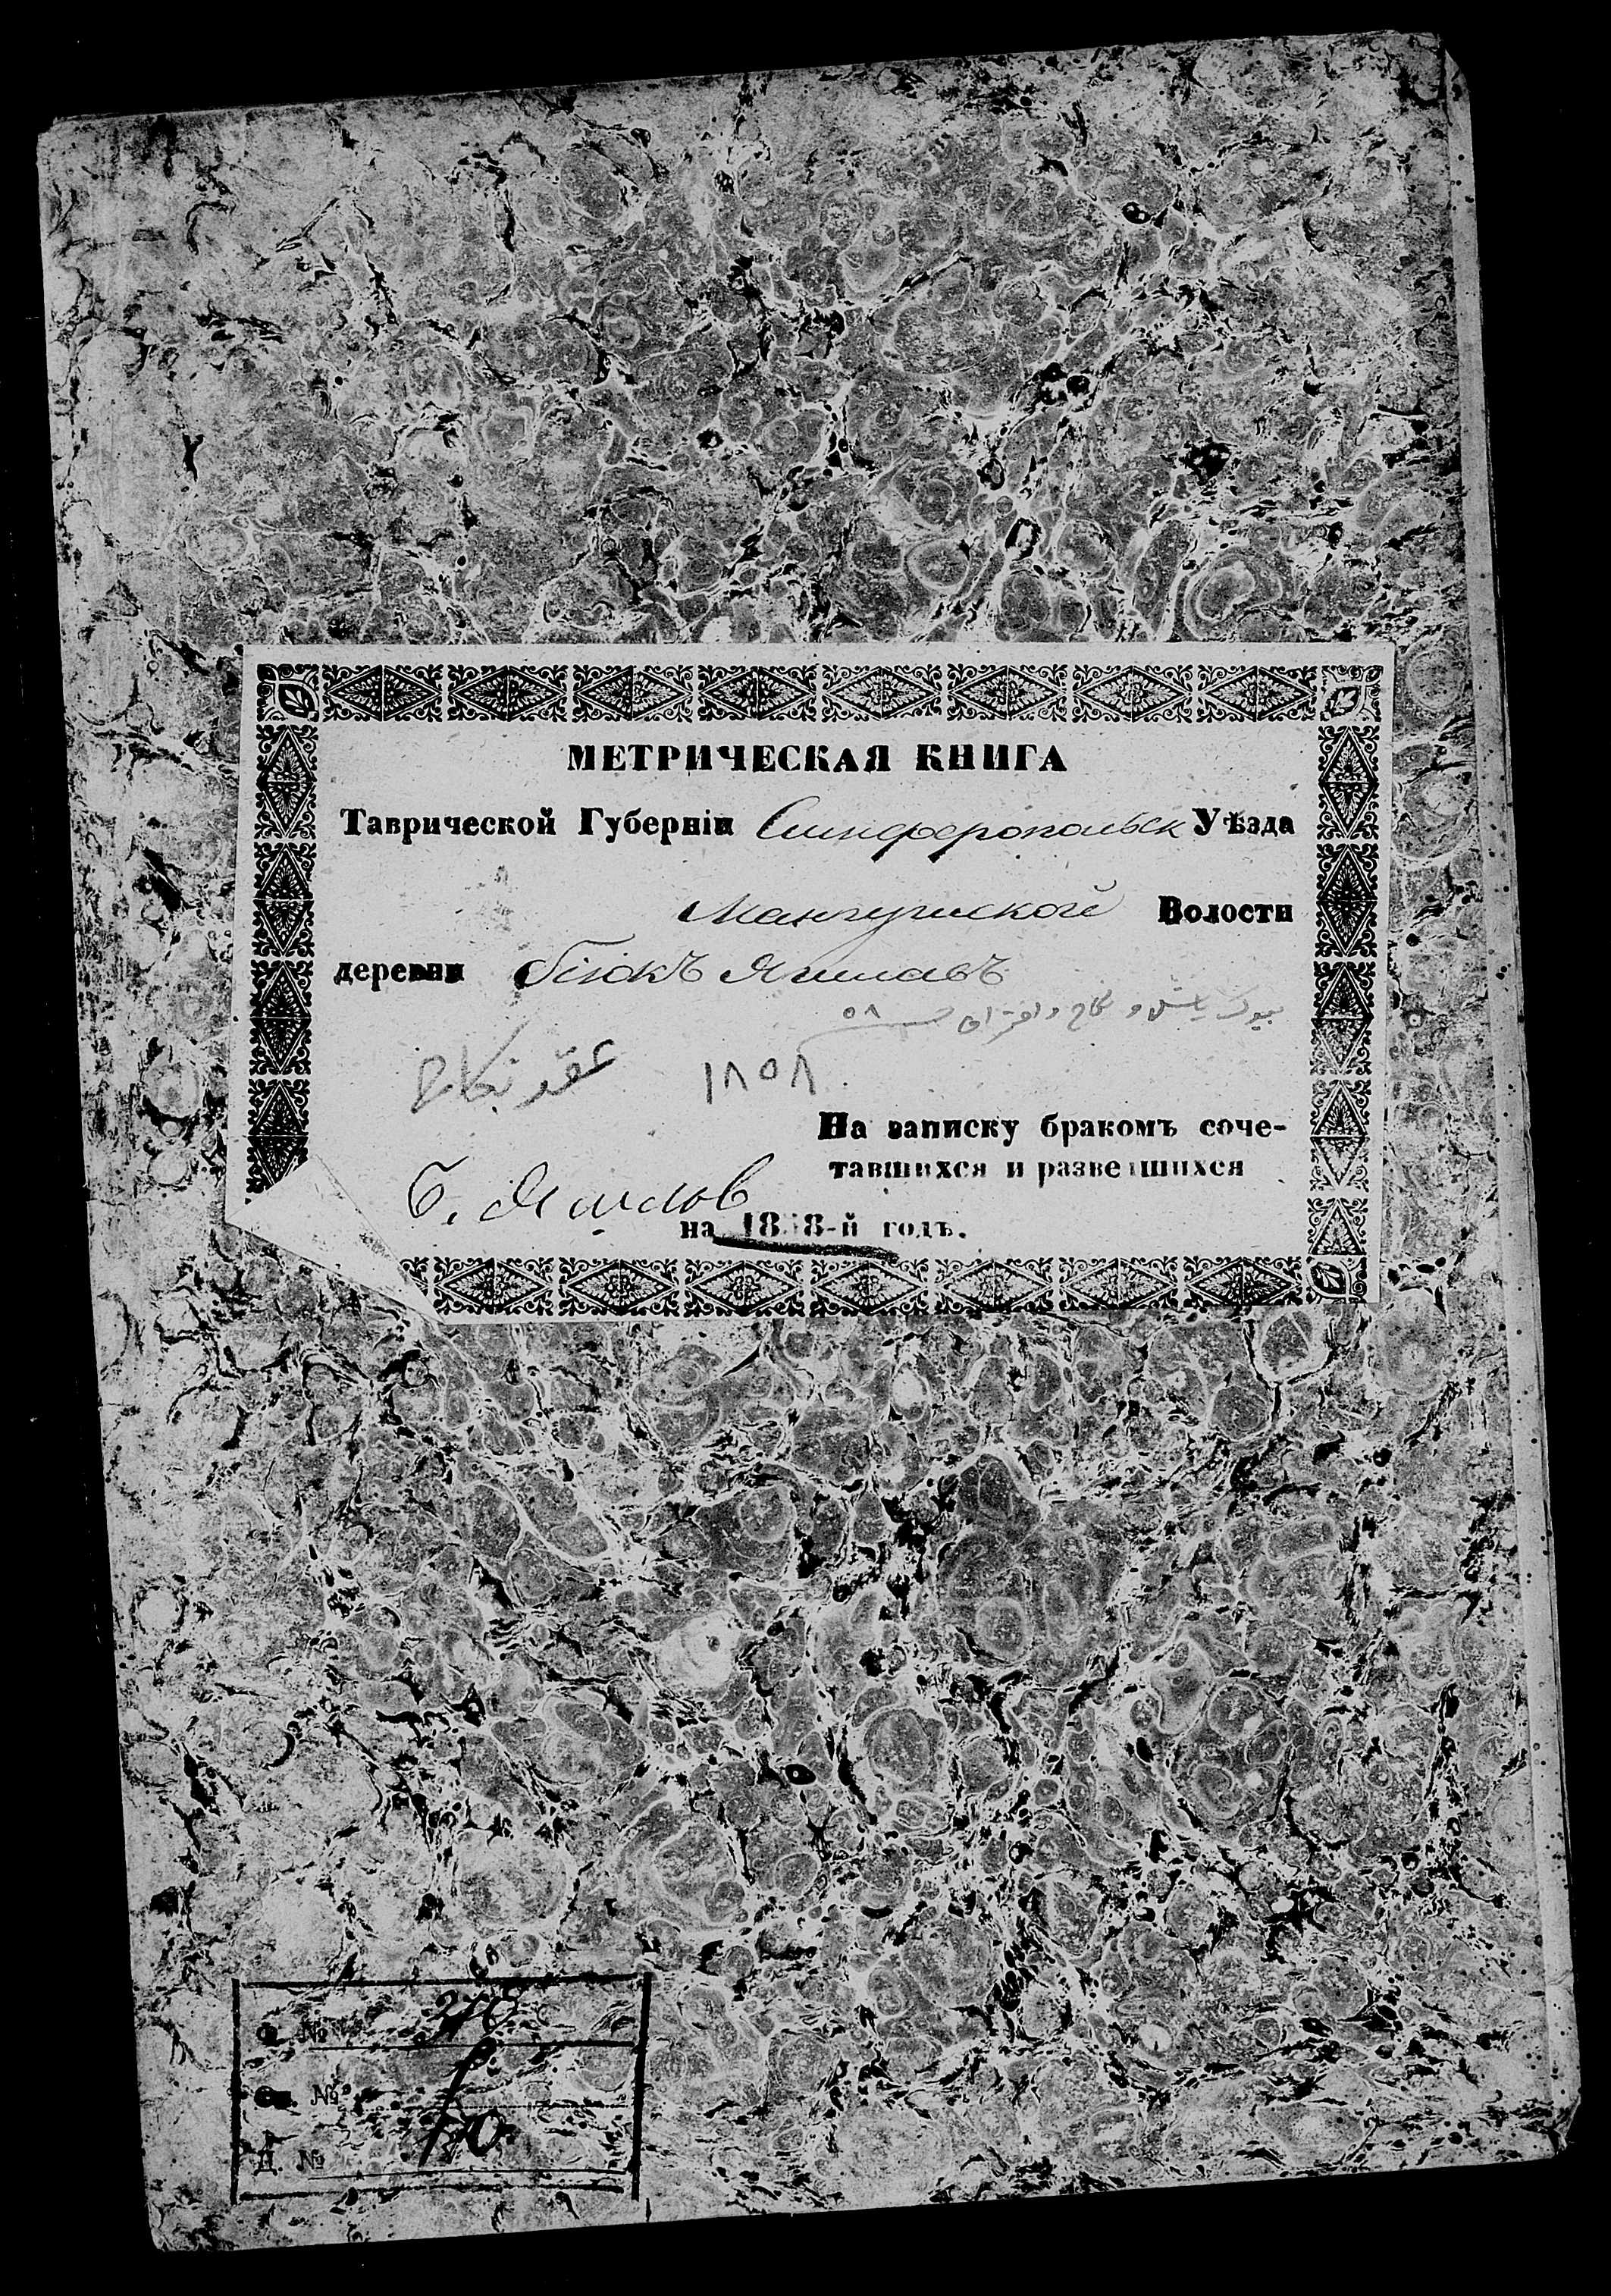 МЕТРИЧЕСКАЯ КНИГА
Таврической Губерніи Симферопольск Уѣзда
Мангушской Волости
деревни Біюкъ Яшлавъ
بيوك ياشلاو نكاح و افتراق ٥٨
عقد نكاح ١٨٥٨
На записку бракомъ соче-
тавшихся и разведшихся
Б. Яшлов
на 1858-й годъ.
Ф. № 348
Оп. № 1
Д. № 10